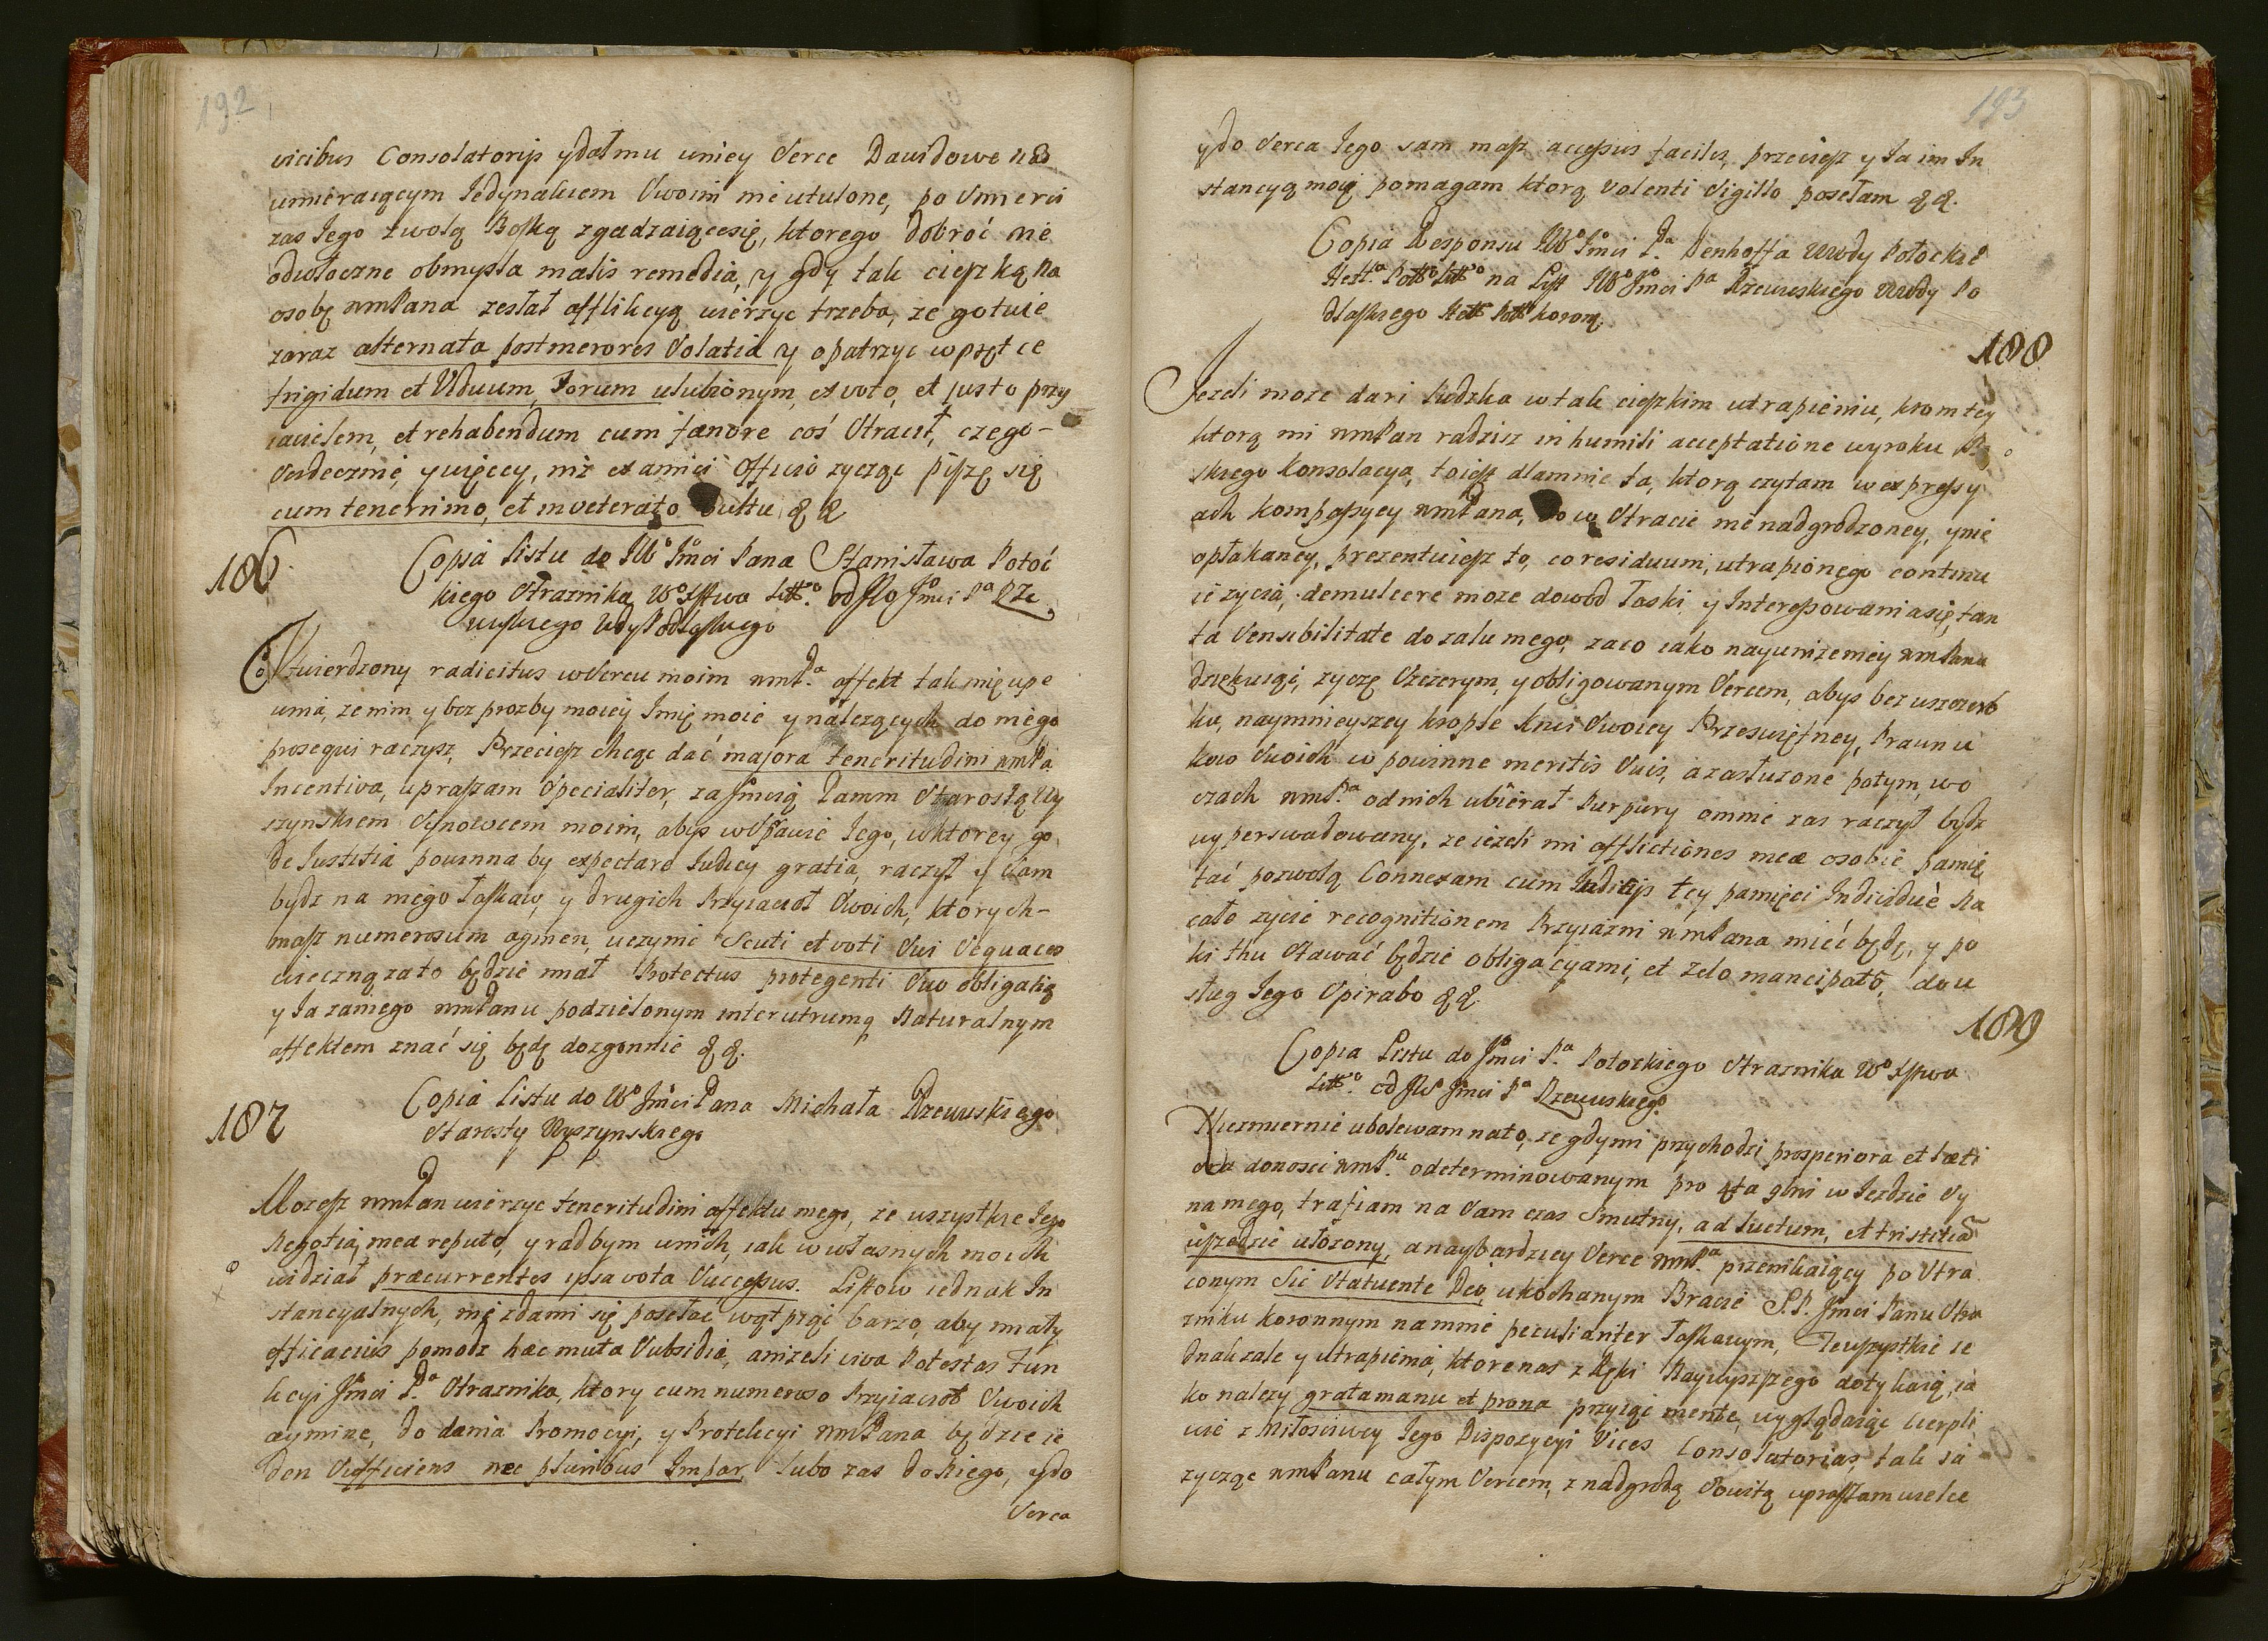 192
vicibus Consolatorijs ydał mu wniey Serce Dawidowe nad
umieraiącym Iedynakiem Swoim nieutulone, po Smierci
zas Iego zwolą Boską zgadzaiącesię, ktorego dobroć nie
odwłoczne obmysla malis remedia, y gdy tak cięszką na
osobę wmPana zesłał afflikcyą wierzyc trzeba, ze gotuie
zaraz alternata post merores Solatia y opatrzyc wprętce
frigidum et Viduum, Torum ulubionym, ex voto, et justo przy
iacielem, et rehabendum cum fænore coś Stracił, czego-
Serdecznie, ywięcey, niz ex amici officio zycząc piszę się
cum tenerrimo, et inveterato Cultu &c &c
186
Copia listu do JWo Jmci Pana Stanisława Potoc
kiego Straznika Wo Xstwa Litto od JWo Jmci Pa Rze
wuskiego Wdy Podlaskiego
Stwierdzony radicitus w Sercu moim wmPa affekt tak mię upe
wnia, ze nim y bez prozby moiey Imię moie y nalezących do niego
prosequi raczysz, Przeciesz chcąc dać majora teneritudini wmPa
Incentiva, upraszam Specialiter, za Jmcią Panem Starostą Wy
szynskiem Synowcem moim, abys w Sprawie Iego, wktorey go
de Iustitia powinna by expectare Iudicy gratia, raczył y Sam
bydz na niego łaskaw, y drugich Przyiacioł Swoich, ktorych-
masz numerosum agmen, uczynic Scuti et voti Sui Sequaces
wieczną zato będzie miał Protectus protegenti Suo obligatią
y Ia zaniego wmPanu podzielonym inter utrumq Naturalnym
affektem znać się będę dozgonnie &c &c.
187
Copia listu do Wo Jmci Pana Michała Rzewuskiego
Starosty Wyszynskiego
Mozesz wmPan wierzyc teneritudini affektu mego, ze wszystkie Iego
Negotia, mea reputo, y radbym wnich, iak w własnych moich
widział præcurrentes ipsa vota Successus. Listow iednak In
stancyalnych, nie zdami się posełac wątpiąc barzo, aby miały
efficacius pomodz hæc muta Subsidia, anizeli viva Potestas Fun
kcyi Jmci Pa Straznika, ktory cum numeroso Przyiacioł Swoich
agmine, do dania Promocyi, y Protekcyi wmPana będzie ie
den Sufficiens nec pluribus Impar, lubo zas do Niego, ydo
Serca
193
ydo Serca Iego sam masz accessus facilis, przeciesz y Ia im In
stancyą moią pomagam ktorą volenti Sigillo posełam &c &c.
Copia Responsu JWo Jmci Pa Denhoffa Wwdy Połockie
Hetta Pollo Litto na List JWo Jmci Pa Rzewuskiego Wwdy Po
dlaskiego Hett Poll koron.
188
Iezeli moze dari ludzka wtak cięszkim utrapieniu, krom tey
ktorą mi wmPan radzisz in humili acceptatione wyroku Bo
skiego Konsolacya, toiesz dlamnie ta, ktorą czytam w expressy
ach kompassyey wmPana, bo w Stracie nienadgrodzoney, ynie
opłakaney, prezentuiesz to, co residuum, utrapionego continu
ie zycia, demulcere moze dowod łaski y Interessowania się, tan
ta Sensibilitate do zalu mego, zaco iako nayunizeniey wmPanu
dziękuiąc, zyczę Szczerym, y obligowanym Sercem, abys bez uszczerb
ku, naymnieyszey krople krwi Swoiey Przeswiętney, Prawnu
kow Swoich w powinne meritis Suis, a zasłuzone potym, w o
czach wmPa od nich ubierał Purpury omnie zas raczył bydz
wyperswadowany, ze iezeli mi afflictiones meæ osobie pamię
tać pozwolą Connexam cum Iudicijs tey pamięci Individuè na
całe zycie recognitionem Przyiazni wmPana mieć będę, y po
ki thu Stawać będzie obligacyami, et Zelo mancipato, do u
sług Iego Spirabo &c &c.
189
Copia Listu do Jmci Pa Potockiego Straznika Wo Xstwa
Litto od JWo Jmci Pa Rzewuskiego
Niezmiernie ubolewam nato, ze gdymi przychodzi prosperiora et læti
ora donosci wmPu o determinowanym pro 4ta gbris w Iezdzie Sy
na mego, trafiam na Sam czas Smutny, ad luctum, et tristitiã
uprzedzie ułozony, a naybardziey Serce wmPa przenikaiący po Stra
conym Sic Statuente Deo, ukochanym Bracie S.P. Jmci Panu Stra
zniku koronnym namnie peculiariter łaskawym, Ze wszystkie ie
dnak zale y utrapienia, ktore nas z Ręki Naywyszszego dotykaią, ia
ko nalezy grata manu et prona przyiąc mente, wyglądaiąc cierpli
wie z Miłosciwey Iego Dispozycyi Vices Consolatorias, tak Ia
zycząc wmPanu całym Sercem, z nadgrodą Sowitą upraszam wielce